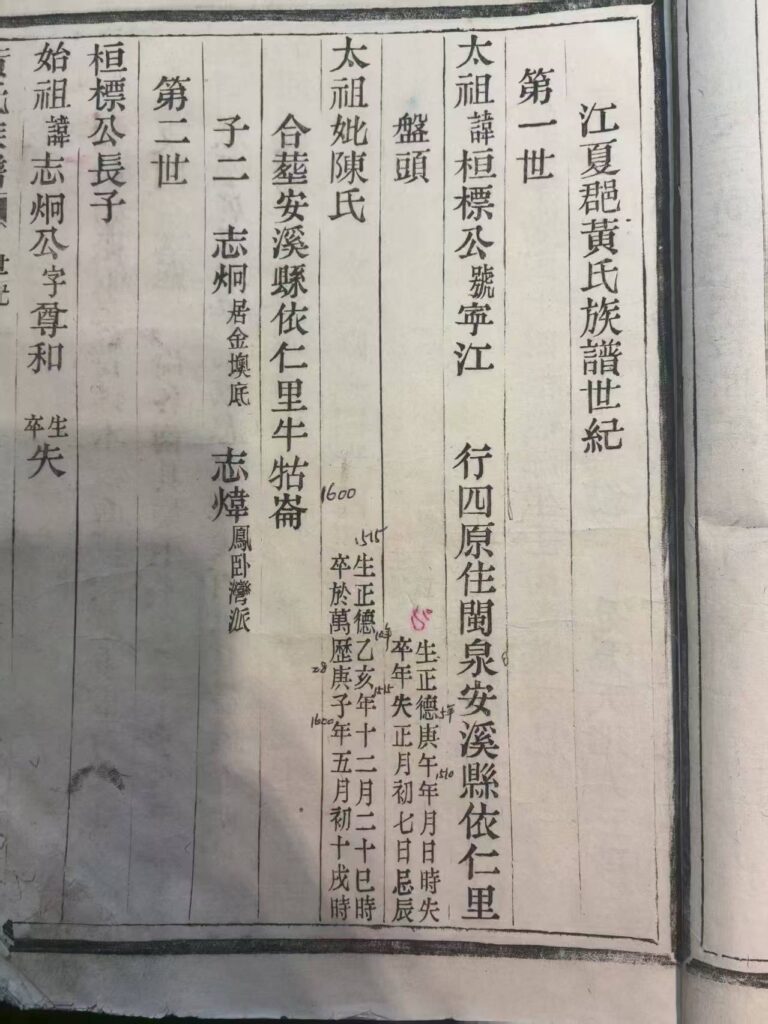 江夏郡黃氏族譜世紀
第一世
太祖諱桓標公號寕江 行四原住閩泉安溪縣依仁里
盤頭
生正德庚午年月日時失
卒年失正月初七日忌辰
5年
1510
太祖妣陳氏
生正德乙亥年十二月二十巳時
卒於萬歷庚子年五月初十戌時
1515
10年
1515
1600
28
1600
合塟安溪縣依仁里牛牯崙
子二 志炯居金墺底 志煒鳳卧灣派
第二世
桓標公長子
始祖諱志炯公字尊和 生卒失
黃氏族譜